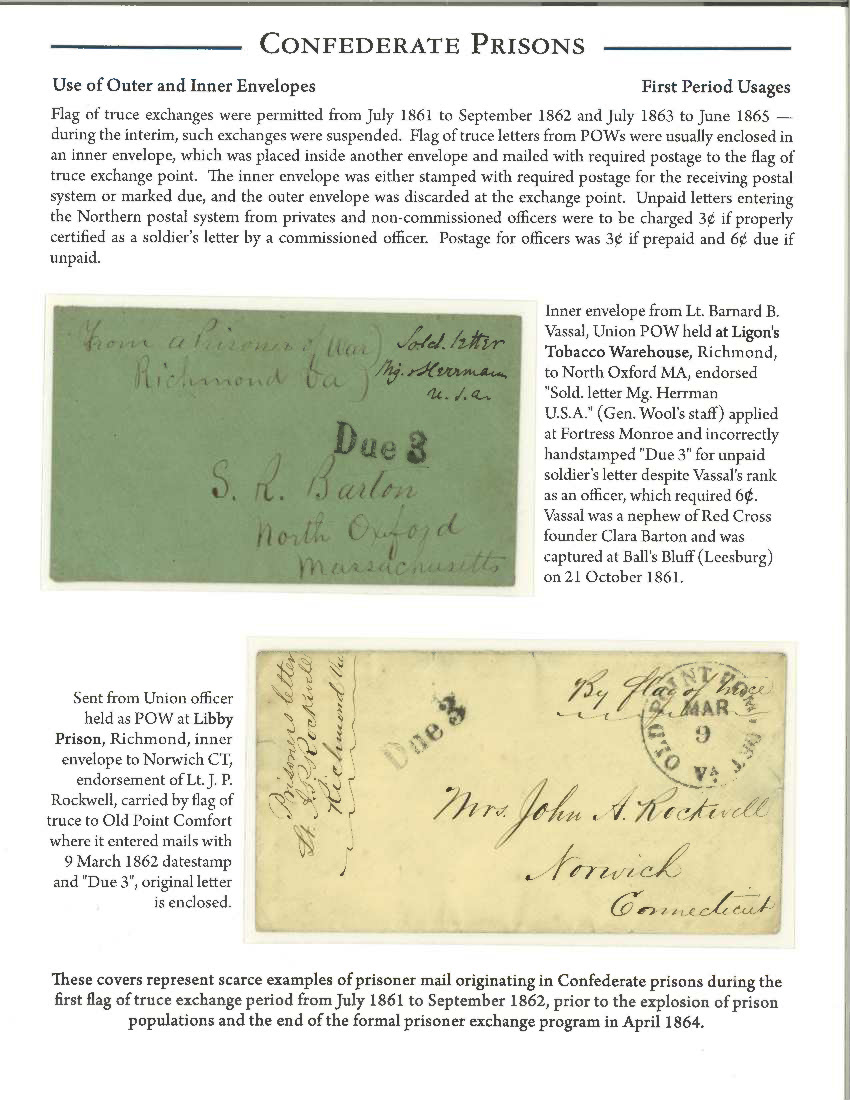 CONFEDERATE PRISONS
Use of Outer and Inner Envelopes
First Period Usages
Flag of truce exchanges were permitted from July 1861 to September 1862 and July 1863 to June 1865 —
during the interim, such exchanges were suspended. Flag of truce letters from POWs were usually enclosed in
an inner envelope, which was placed inside another envelope and mailed with required postage to the flag of
truce exchange point. The inner envelope was either stamped with required postage for the receiving postal
system or marked due, and the outer envelope was discarded at the exchange point. Unpaid letters entering
the Northern postal system from privates and non-commissioned officers were to be charged 3¢ if properly
certified as a soldier's letter by a commissioned officer. Postage for officers was 3¢ if prepaid and 6¢ due if
unpaid.
From a Prisoner of War)
Richmond Va )
Sold. letter
Mg. Herrman
U.S.A.
Due 3
S. R. Barton
North Oxford
Massachusetts
Inner envelope from Lt. Barnard B.
Vassal, Union POW held at Ligon's
Tobacco Warehouse, Richmond,
to North Oxford MA, endorsed
"Sold. letter Mg. Herrman
U.S.A." (Gen. Wool's staff) applied
at Fortress Monroe and incorrectly
handstamped "Due 3" for unpaid
soldier's letter despite Vassal's rank
as an officer, which required 6¢.
Vassal was a nephew of Red Cross
founder Clara Barton and was
captured at Ball's Bluff (Leesburg)
on 21 October 1861.
Sent from Union officer
held as POW at Libby
Prison, Richmond, inner
envelope to Norwich CT,
endorsement of Lt. J. P.
Rockwell, carried by flag of
truce to Old Point Comfort
where it entered mails with
9 March 1862 datestamp
and "Due 3", original letter
is enclosed.
Prisoners letter
Lt. A.P. Rockwell
Richmond Va.
Due 3
By flag of truce
OLD POINT COMFORT
MAR
9
Va
Mrs. John A. Rockwell
Norwich
Connecticut
These covers represent scarce examples of prisoner mail originating in Confederate prisons during the
first flag of truce exchange period from July 1861 to September 1862, prior to the explosion of prison
populations and the end of the formal prisoner exchange program in April 1864.